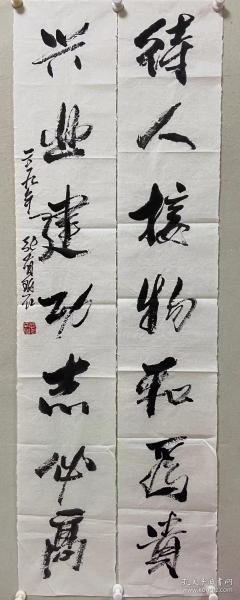 待人接物和为贵
兴业建功志必高
二〇一九年
孔夫子旧书网